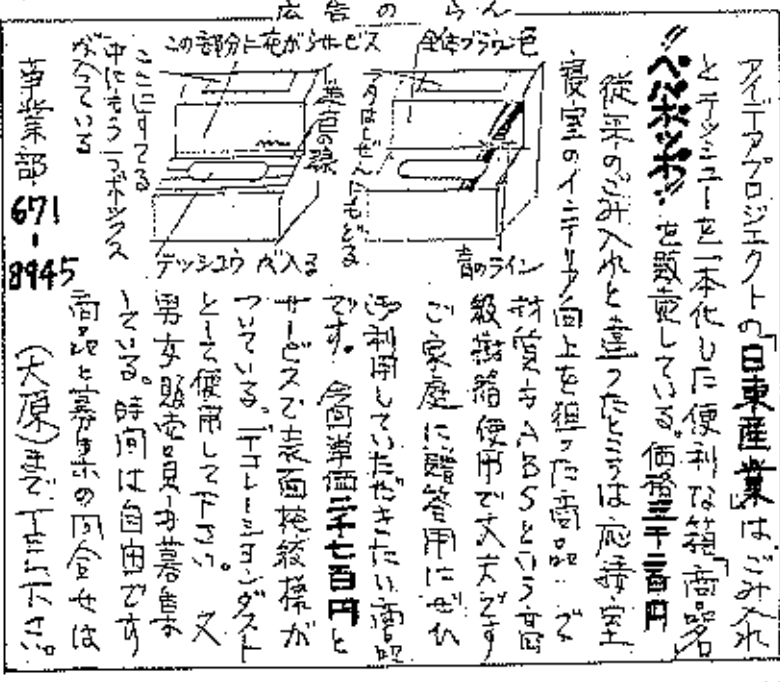 広告のらん
アイデアプロジェクトの「日東産業」はごみ入れ
とテッシューを一本化した便利な箱「商品名
〃ペパポッポ〃を販売している。価格三千二百円
従来のごみ入れと違ったところは応接室
寝室のインテリア向上を狙った商品で
材質もABSという高
級樹脂使用で丈夫です
ご家庭に贈答用にぜひ
御利用していただきたい商品
です。今回単価三千七百円と
サービスで表面花紋様が
ついている。デコレーションダスト
として使用して下さい。又
男女販売員も募集
している。時間は自由です
商品と募集の問合せは
事業部 671-8945 (大原)まで下さい。
全体ブラウン色
フタはしぜんにもどる
音のライン
この部分に花がらサービス
ここにすてる
中にもう一つボックス
が入っている
テッシュウが入る